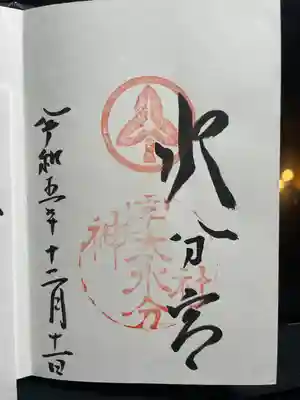 水分宮
宇太水分神社
令和五年十二月十一日